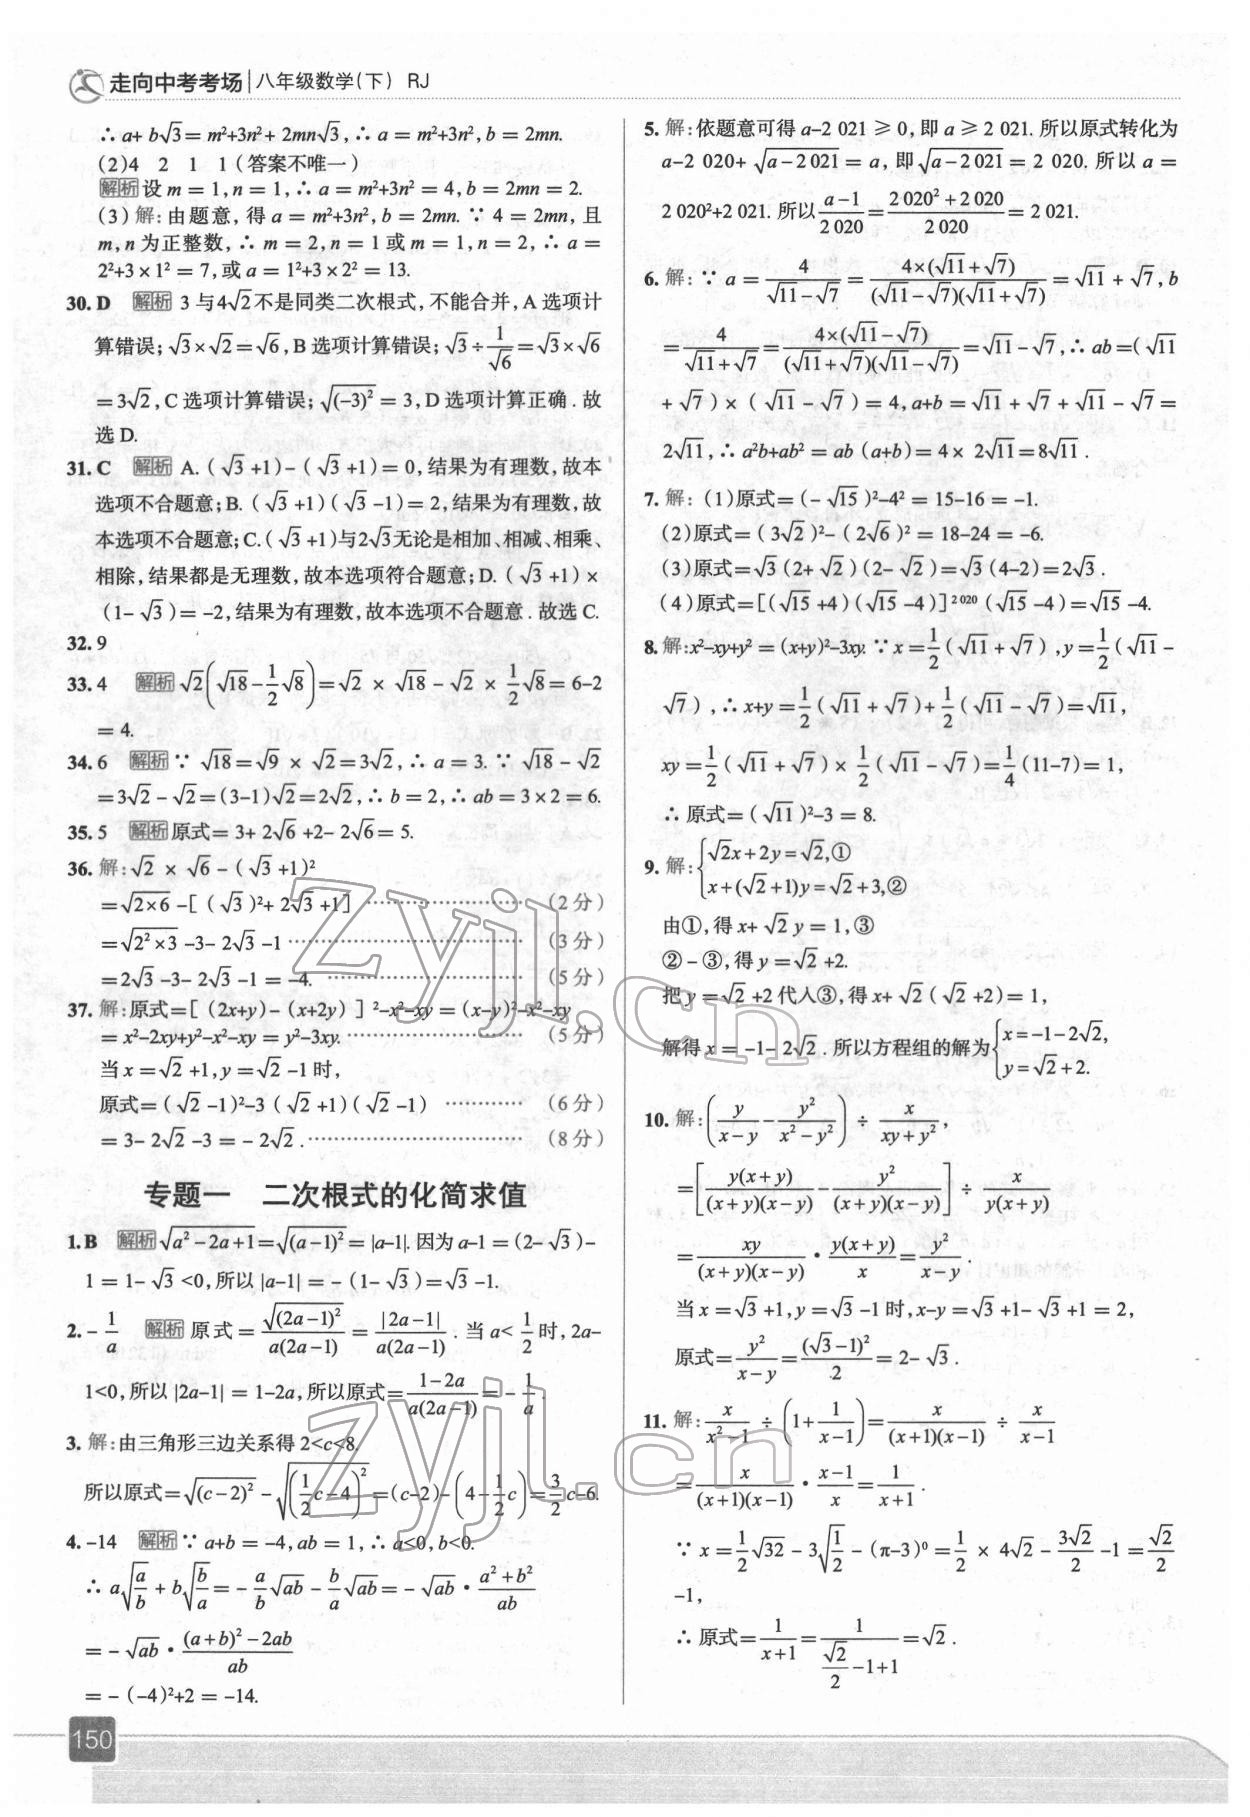 走向中考考场 八年级数学(下) RJ
∴ a+ b√3 = m²+3n²+ 2mn√3, ∴ a = m²+3n², b = 2mn.
(2)4 2 1 1 (答案不唯一)
解析 设 m = 1, n = 1, ∴ a = m²+3n² = 4, b = 2mn = 2.
(3) 解: 由题意, 得 a = m²+3n², b = 2mn. ∵ 4 = 2mn, 且
m, n 为正整数, ∴ m = 2, n = 1 或 m = 1, n = 2, ∴ a =
2²+3 × 1² = 7, 或 a = 1²+3 × 2² = 13.
30. D 解析 3 与 4√2 不是同类二次根式, 不能合并, A 选项计
算错误; √3 × √2 = √6, B 选项计算错误; √3 ÷ 1/√6 = √3 × √6
= 3√2, C 选项计算错误; √((-3)²) = 3, D 选项计算正确. 故
选 D.
31. C 解析 A. (√3 +1)- (√3 +1) = 0, 结果为有理数, 故本
选项不合题意; B. (√3 +1)(√3 -1) = 2, 结果为有理数, 故
本选项不合题意; C. (√3 +1)与2√3无论是相加、相减、相乘、
相除, 结果都是无理数, 故本选项符合题意; D. (√3 +1) ×
(1- √3) = -2, 结果为有理数, 故本选项不合题意. 故选 C.
32. 9
33. 4 解析 √2(√18 - 1/2 √8) = √2 × √18 - √2 × 1/2 √8 = 6-2
= 4.
34. 6 解析 ∵ √18 = √9 × √2 = 3√2, ∴ a = 3. ∵ √18 - √2
= 3√2 - √2 = (3-1)√2 = 2√2, ∴ b = 2, ∴ ab = 3 × 2 = 6.
35. 5 解析 原式= 3+ 2√6 +2- 2√6 = 5.
36. 解: √2 × √6 - (√3 +1)²
= √(2×6) -[ (√3)²+ 2√3 +1] ………… (2 分)
= √(2²×3) -3- 2√3 -1 ………… (3 分)
= 2√3 -3- 2√3 -1 = -4. ………… (5 分)
37. 解: 原式= [ (2x+y)- (x+2y) ] ²-x²-xy = (x-y)²-x²-xy
= x²-2xy+y²-x²-xy = y²-3xy. ………… (5 分)
当 x = √2 +1, y = √2 -1 时,
原式= (√2 -1)²-3 (√2 +1)(√2 -1) ………… (6 分)
= 3- 2√2 -3 = - 2√2. ………… (8 分)
专题一 二次根式的化简求值
1. B 解析 √(a²-2a+1) = √((a-1)²) = |a-1|. 因为 a-1 = (2- √3)-
1 = 1- √3 <0, 所以 |a-1| = - (1- √3) = √3 -1.
2. - 1/a 解析 原式 = √((2a-1)²)/(a(2a-1)) = |2a-1|/(a(2a-1)). 当 a< 1/2 时, 2a-
1<0, 所以 |2a-1| = 1-2a, 所以原式= (1-2a)/(a(2a-1)) = - 1/a.
3. 解: 由三角形三边关系得 2<c<8.
所以原式= √((c-2)²) - √((1/2 c-4)²) = (c-2)- (4- 1/2 c) = 3/2 c-6.
4. -14 解析 ∵ a+b = -4, ab = 1, ∴ a<0, b<0.
∴ a√(a/b) + b√(b/a) = - a/b √ab - b/a √ab = - √ab · (a²+b²)/ab
= - √ab · ((a+b)²-2ab)/ab
= - (-4)²+2 = -14.
5. 解: 依题意可得 a-2 021 ≥ 0, 即 a ≥ 2 021. 所以原式转化为
a-2 020+ √(a-2 021) = a, 即 √(a-2 021) = 2 020. 所以 a =
2 020²+2 021. 所以 (a-1)/2 020 = (2 020²+2 020)/2 020 = 2 021.
6. 解: ∵ a = 4/(√11-√7) = 4×(√11+√7)/((√11-√7)(√11+√7)) = √11 + √7, b
= 4/(√11+√7) = 4×(√11-√7)/((√11+√7)(√11-√7)) = √11 - √7, ∴ ab = (√11
+ √7) × (√11 - √7) = 4, a+b = √11 + √7 + √11 - √7 =
2√11, ∴ a²b+ab² = ab (a+b) = 4× 2√11 = 8√11.
7. 解: (1)原式= (- √15)²-4² = 15-16 = -1.
(2)原式= (3√2)²- (2√6)² = 18-24 = -6.
(3)原式= √3 (2+ √2)(2- √2) = √3 (4-2) = 2√3.
(4)原式= [(√15 +4)(√15 -4)]²⁰²⁰ (√15 -4) = √15 -4.
8. 解: x²-xy+y² = (x+y)²-3xy. ∵ x = 1/2 (√11 + √7), y = 1/2 (√11 -
√7), ∴ x+y = 1/2 (√11 + √7)+ 1/2 (√11 - √7) = √11,
xy = 1/2 (√11 + √7) × 1/2 (√11 - √7) = 1/4 (11-7) = 1,
∴ 原式= (√11)²-3 = 8.
9. 解: {√2x+2y = √2, ①
x+(√2+1)y = √2+3, ②
由①, 得 x+ √2 y = 1, ③
② - ③, 得 y = √2 +2.
把 y = √2 +2 代人③, 得 x+ √2 (√2 +2) = 1,
解得 x = -1- 2√2. 所以方程组的解为 {x = -1-2√2,
y = √2+2.
10. 解: (y/(x-y) - y²/(x²-y²)) ÷ x/(xy+y²),
= [y(x+y)/((x+y)(x-y)) - y²/((x+y)(x-y))] ÷ x/(y(x+y))
= xy/((x+y)(x-y)) · y(x+y)/x = y²/(x-y).
当 x = √3 +1, y = √3 -1 时, x-y = √3 +1- √3 +1 = 2,
原式= y²/(x-y) = (√3-1)²/2 = 2- √3.
11. 解: x/(x²-1) ÷ (1+ 1/(x-1)) = x/((x+1)(x-1)) ÷ x/(x-1)
= x/((x+1)(x-1)) · (x-1)/x = 1/(x+1).
∵ x = 1/2 √32 - 3√(1/2) - (π-3)⁰ = 1/2 × 4√2 - 3√2/2 -1 = √2/2
-1,
∴ 原式= 1/(x+1) = 1/(√2/2 -1+1) = √2.
150
zyjl.cn
zyjl.cn